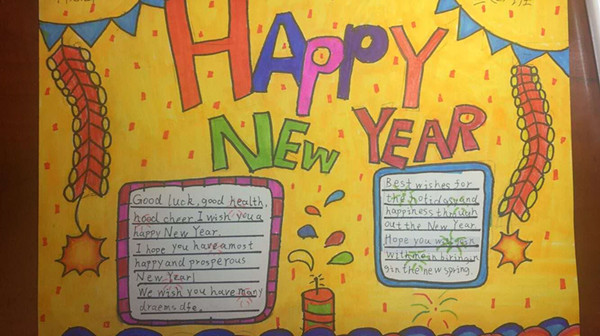 HAPPY
NEW YEAR
Good luck, good health,
hood cheer I wish you a
happy New Year.
I hope you have a most
happy and prosperous
New Year
We wish you have many
draems dfe.
Best wishes for
the hotidasy and
happiness through
out the New Year.
Hope you
with me in biringin
gin the new spring.